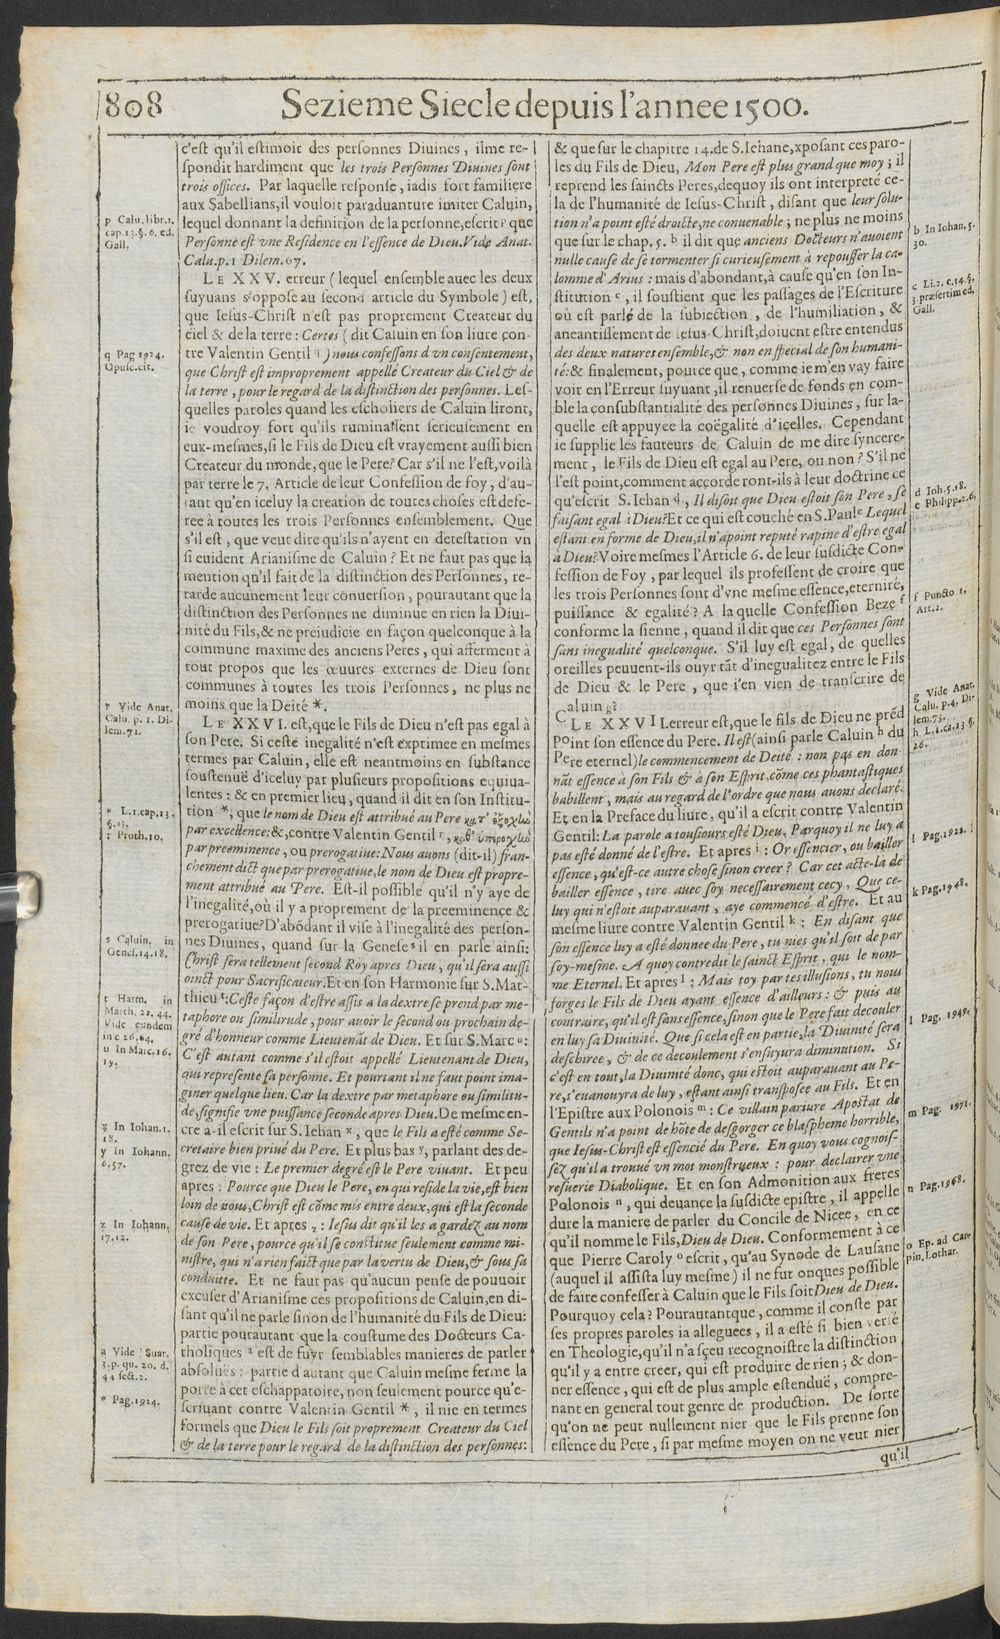 808
Sezieme Siecle depuis l'annee 1500.
c'est qu'il estimoit des personnes Diuines, il me re-
spondit hardiment que les trois Personnes Diuines sont
trois offices. Par laquelle response, iadis fort familiere
aux Sabellians, il vouloit paraduanture imiter Caluin,
lequel donnant la definition de la personne, escrit p que
Personne est vne Residence en l'essence de Dieu. Vide Anat.
Calu. p. 1 Dilem. 67.
LE XXV. erreur (lequel ensemble auec les deux
suyuans s'oppose au second article du Symbole) est,
que Iesus-Christ n'est pas proprement Createur du
ciel & de la terre: Certes (dit Caluin en son liure con-
tre Valentin Gentil q) nous confessons d'vn consentement,
que Christ est improprement appellé Createur du Ciel & de
la terre, pour le regard de la distinction des personnes. Les-
quelles paroles quand les escholiers de Caluin liront,
ie voudroy fort qu'ils ruminassent serieusement en
eux-mesmes, si le Fils de Dieu est vrayement aussi bien
Createur du monde, que le Pere? Car s'il ne l'est, voilà
par terre le 7. Article de leur Confession de foy, d'au-
tant qu'en iceluy la creation de toutes choses est defe-
ree à toutes les trois Personnes ensemblement. Que
s'il est, que veut dire qu'ils n'ayent en detestation vn
si euident Arianisme de Caluin? Et ne faut pas que la
mention qu'il fait de la distinction des Personnes, re-
tarde aucunement leur conuersion, pourautant que la
distinction des Personnes ne diminue en rien la Diui-
nité du Fils, & ne preiudicie en façon quelconque à la
commune maxime des anciens Peres, qui afferment à
tout propos que les œuures externes de Dieu sont
communes à toutes les trois Personnes, ne plus ne
moins que la Deité *.
LE XXVI. est, que le Fils de Dieu n'est pas egal à
son Pere. Si ceste inegalité n'est exprimee en mesmes
termes par Caluin, elle est neantmoins en substance
soustenuë d'iceluy par plusieurs propositions equiua-
lentes: & en premier lieu, quand il dit en son Institu-
tion *, que le nom de Dieu est attribué au Pere κατ' ἐξοχὴν
par excellence: &, contre Valentin Gentil r, καθ' ὑπεροχὴν
par preeminence, ou prerogatiue: Nous auons (dit-il) fran-
chement dict que par prerogatiue, le nom de Dieu est propre-
ment attribué au Pere. Est-il possible qu'il n'y aye de
l'inegalité, où il y a proprement de la preeminence &
prerogatiue? D'abōdant il vise à l'inegalité des person-
nes Diuines, quand sur la Genese s il en parle ainsi:
Christ sera tellement second Roy apres Dieu, qu'il sera aussi
oinct pour Sacrificateur. Et en son Harmonie sur S. Mat-
thieu t: Ceste façon d'estre assis a la dextre se prend par me-
taphore ou similitude, pour auoir le second ou prochain de-
gré d'honneur comme Lieutenāt de Dieu. Et sur S. Marc u:
C'est autant comme s'il estoit appellé Lieutenant de Dieu,
qui represente sa personne. Et pourtant il ne faut point ima-
giner quelque lieu. Car la dextre par metaphore ou similitu-
de, signifie vne puissance seconde apres Dieu. De mesme en-
cre a-il escrit sur S. Iehan x, que le Fils a esté comme Se-
cretaire bien priué du Pere. Et plus bas y, parlant des de-
grez de vie: Le premier degré est le Pere viuant. Et peu
apres: Pource que Dieu le Pere, en qui reside la vie, est bien
loin de nous, Christ est cōme mis entre deux, qui est la seconde
cause de vie. Et apres z: Iesus dit qu'il les a gardez au nom
de son Pere, pource qu'il se constitue seulement comme mi-
nistre, qui n'a rien faict que par la vertu de Dieu, & sous sa
conduitte. Et ne faut pas qu'aucun pense de pouuoir
excuser d'Arianisme ces propositions de Caluin, en di-
sant qu'il ne parle sinon de l'humanité du Fils de Dieu:
partie pourautant que la coustume des Docteurs Ca-
tholiques a est de fuyr semblables manieres de parler
absoluës: partie d'autant que Caluin mesme ferme la
porte à cet eschappatoire, non seulement pource qu'e-
scriuant contre Valentin Gentil *, il nie en termes
formels que Dieu le Fils soit proprement Createur du Ciel
& de la terre pour le regard de la distinction des personnes:
p Calu. libr. 1.
cap. 13. §. 6. ed.
Gall.
q Pag 1924.
Opusc. cit.
* Vide Anat.
Calu. p. 1. Di-
lem. 71.
* L. 1. cap. 13.
r Proth. 10.
s Caluin, in
Genes. 14. 18.
t Harm. in
Matth. 22. 44.
Vide eundem
in c 26, 64.
u In Marc. 16.
19.
x In Iohan. 1.
18.
y in Iohann.
6. 57.
z In Iohann.
17. 12.
a Vide Suar.
3. p. qu. 20. d.
44 sect. 2.
* Pag. 1924.
& que sur le chapitre 14. de S. Iehane, xposant ces paro-
les du Fils de Dieu, Mon Pere est plus grand que moy; il
reprend les saincts Peres, dequoy ils ont interpreté ce-
la de l'humanité de Iesus-Christ, disant que leur solu-
tion n'a point esté droicte, ne conuenable; ne plus ne moins
que sur le chap. 5. b il dit que anciens Docteurs n'auoient
nulle cause de se tormenter si curieusement à repousser la ca-
lomme d'Arius: mais d'abondant, à cause qu'en son In-
stitution c, il soustient que les passages de l'Escriture
où est parlé de la subiection, de l'humiliation, &
aneantissement de Iesus-Christ, doiuent estre entendus
des deux natures ensemble, & non en special de son humani-
té: & finalement, pource que, comme ie m'en vay faire
voir en l'Erreur suyuant, il renuerse de fonds en com-
ble la consubstantialité des personnes Diuines, sur la-
quelle est appuyee la coëgalité d'icelles. Cependant
ie supplie les fauteurs de Caluin de me dire syncere-
ment, le Fils de Dieu est egal au Pere, ou non? S'il ne
l'est point, comment accorderont-ils à leur doctrine ce
qu'escrit S. Iehan d, Il disoit que Dieu estoit son Pere, se
faisant egal à Dieu? Et ce qui est couché en S. Paul e Lequel
estant en forme de Dieu, il n'a point reputé rapine d'estre egal
à Dieu? Voire mesmes l'Article 6. de leur susdicte Con-
fession de Foy, par lequel ils professent de croire que
les trois Personnes sont d'vne mesme essence, eternité,
puissance & egalité? A laquelle Confession Beze f
conforme la sienne, quand il dit que ces Personnes sont
sans inegualité quelconque. S'il luy est egal, de quelles
oreilles peuuent-ils ouyr tāt d'inegualitez entre le Fils
de Dieu & le Pere, que i'en vien de transcrire de
Caluin g?
LE XXVII. erreur est, que le fils de Dieu ne prēd
point son essence du Pere. Il est (ainsi parle Caluin h du
Pere eternel) le commencement de Deité: non pas en don-
nāt essence à son Fils & à son Esprit, cōme ces phantastiques
babillent, mais au regard de l'ordre que nous auons declaré.
Et en la Preface du liure, qu'il a escrit contre Valentin
Gentil: La parole a tousiours esté Dieu, Parquoy il ne luy a
pas esté donné de l'estre. Et apres i: Or essencier, ou bailler
essence, qu'est-ce autre chose sinon creer? Car cet acte-la de
bailler essence, tire auec soy necessairement cecy, Que ce-
luy qui n'estoit auparauant, aye commencé d'estre. Et au
mesme liure contre Valentin Gentil k: En disant que
son essence luy a esté donnee du Pere, tu nies qu'il soit de par
soy-mesme. A quoy contredit le sainct Esprit, qui le nom-
me Eternel. Et apres l: Mais toy par tes illusions, tu nous
forges le Fils de Dieu ayant essence d'ailleurs: & puis au
contraire, qu'il est sans essence, sinon que le Pere fait decouler
en luy sa Diuinité. Que si cela est en partie, la Diuinité sera
deschiree, & de ce decoulement s'ensuyura diminution. Si
c'est en tout, la Diuinité donc, qui estoit auparauant au Pe-
re, s'euanouyra de luy, estant ainsi transposee au Fils. Et en
l'Epistre aux Polonois m: Ce villain pariure Apostat de
Gentils n'a point de hōte de desgorger ce blaspheme horrible,
que Iesus-Christ est essencié du Pere. En quoy vous cognois-
sez qu'il a trouué vn mot monstrueux: pour declairer vne
resuerie Diabolique. Et en son Admonition aux freres
Polonois n, qui deuance la susdicte epistre, il appelle
dure la maniere de parler du Concile de Nicee, en ce
qu'il nomme le Fils, Dieu de Dieu. Conformement à ce
que Pierre Caroly o escrit, qu'au Synode de Lausane
(auquel il assista luy mesme) il ne fut onques possible
de faire confesser à Caluin que le Fils soit Dieu de Dieu.
Pourquoy cela? Pourautant que, comme il conste par
ses propres paroles ia alleguees, il a esté si bien versé
en Theologie, qu'il n'a sçeu recognoistre la distinction
qu'il y a entre creer, qui est produire de rien; & don-
ner essence, qui est de plus ample estenduë, compre-
nant en general tout genre de production. De sorte
qu'on ne peut nullement nier que le Fils prenne son
essence du Pere, si par mesme moyen on ne veut nier
qu'il
b In Iohan. 5.
30.
c Li. 2. c. 14. §.
3. præsertim ed.
Gall.
d Ioh. 5. 18.
e Philipp. 2. 6.
f Puncto 1.
Art. 2.
g Vide Anat.
Calu. p. 4. Di-
lem. 73.
h L. 1. ca. 13 §.
26.
l Pag. 1928.
k Pag. 1948.
l Pag. 1949.
m Pag. 1971.
n Pag. 1968.
o Ep. ad Car-
pin. Lothar.